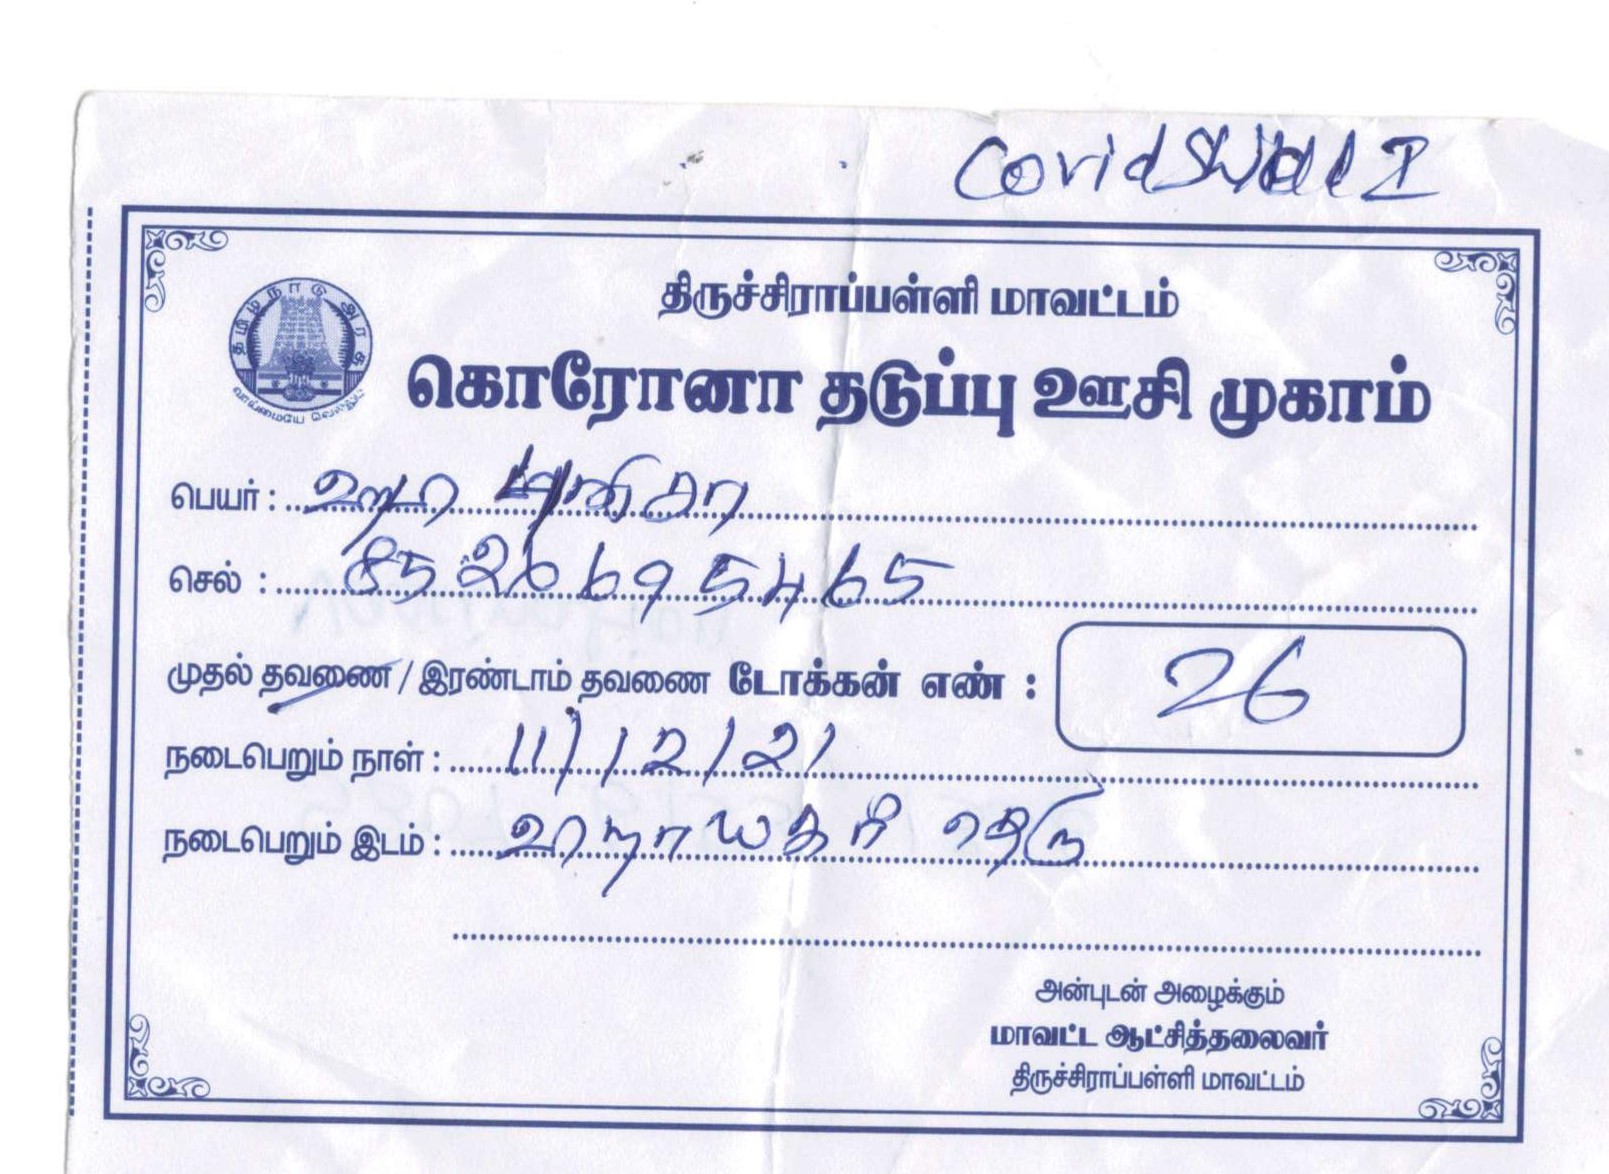 Covid Shield I
திருச்சிராப்பள்ளி மாவட்டம்
தமிழ்நாடு அரசு
வாய்மையே வெல்லும்
கொரோனா தடுப்பு ஊசி முகாம்
பெயர் :
செல் : 8526695465
முதல் தவணை / இரண்டாம் தவணை டோக்கன் எண் : 26
நடைபெறும் நாள் : 11/12/21
நடைபெறும் இடம் : தெரு
அன்புடன் அழைக்கும்
மாவட்ட ஆட்சித்தலைவர்
திருச்சிராப்பள்ளி மாவட்டம்